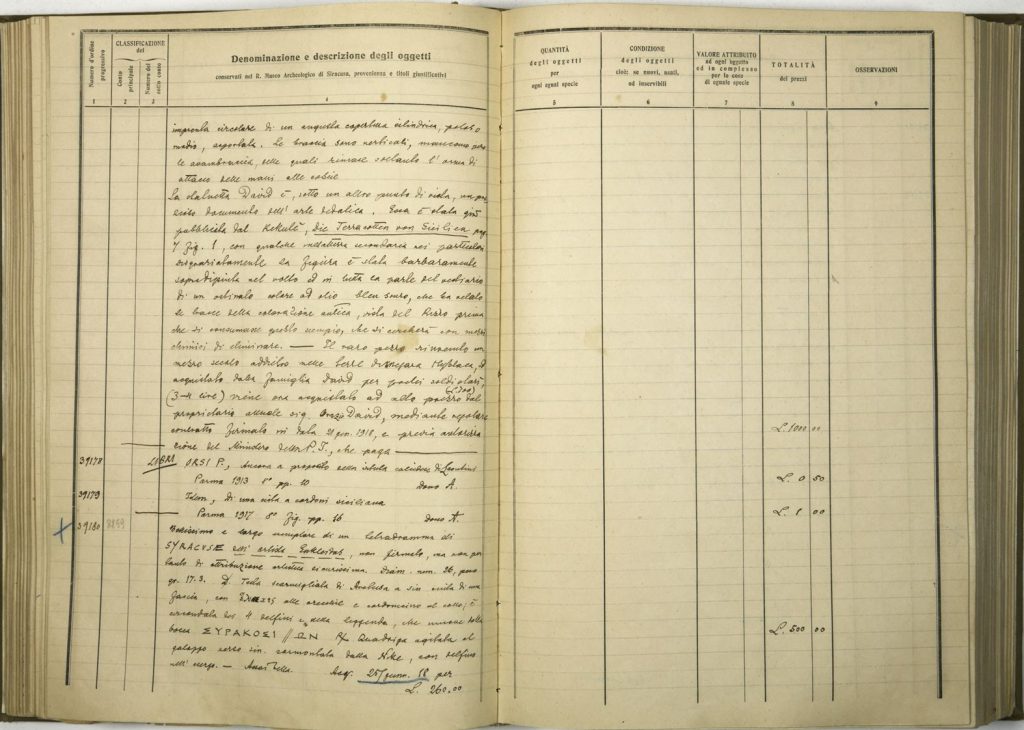 Numero d'ordine progressivo
CLASSIFICAZIONE del
Conto principale
Numero del sotto conto
Denominazione e descrizione degli oggetti
conservati nel R. Museo Archeologico di Siracusa, provenienza e titoli giustificativi
1 2 3 4
QUANTITÀ
degli oggetti
per
ogni egual specie
5
CONDIZIONE
degli oggetti
cioè: se nuovi, usati,
od inservibili
6
VALORE ATTRIBUITO
ad ogni oggetto
ed in complesso
per le cose
di eguale specie
7
TOTALITÀ
dei prezzi
8
OSSERVAZIONI
9
impronta circolare di un angusta copertura cilindrica, polos o
modio, asportata. Le braccia sono verticali, mancano però
le avambraccia, delle quali rimase soltanto l'orma di
attacco delle mani alle coscie
La statuetta David è, sotto un altro punto di vista, un
documento dell'arte dedalica. Essa è stata già
pubblicata dal Kekulé, Die Terracotten von Sicilien pag.
7 Fig. 1, con qualche inesattezza secondaria nei particolari
disgraziatamente la figura è stata barbaramente
sopradipinta nel volto ed in tutta la parte del vestiario
di un ostinato colore ad olio bleu scuro, che ha velato
le tracce della colorazione antica, vista del Rizzo prima
che si consumasse questo scempio, che si cercherà con mezzi
chimici di eliminare. — Il raro pezzo rinvenuto un
mezzo secolo addietro nelle terre di Megara Hyblaea, ed
acquistato dalla famiglia David per pochi soldi
(3-4 lire) viene ora acquistato ad alto prezzo dal
(L. 1000)
proprietario attuale sig. David, mediante regolare
contratto firmato in data 21 gen. 1918, e previa autorizza
zione del Ministero della P. I., che paga — L. 1000 00
39178 LIBRI ORSI P., Ancora a proposito della istula calcidese di Leontinoi
Parma 1913 8° pp. 10 dono A. L. 0 50
39179 Idem, di una cista a cordoni siciliana
Parma 1917 8° Fig. pp. 16 dono A. L. 1 00
39180 Bellissimo e largo esemplare di un tetradramma di
SYRACUSE dell'artista Eukleidas, non firmato, ma non per
tanto di attribuzione artistica sicurissima. Diam. mm. 26, peso
gr. 17.3. D. Testa scarmigliata di Arethusa a sin. cinta di una
fascia, con alle orecchie e cordoncino al collo; è
circondata dai 4 delfini e dalla leggenda, che muove dalla
bocca ΣΥΡΑΚΟΣΙ // ΩΝ R/ Quadriga agitata al
galoppo verso sin. sormontata dalla Nike, con delfino
nell'esergo. — Acq. 25 genn. 18 per L. 500 00
L. 260.00